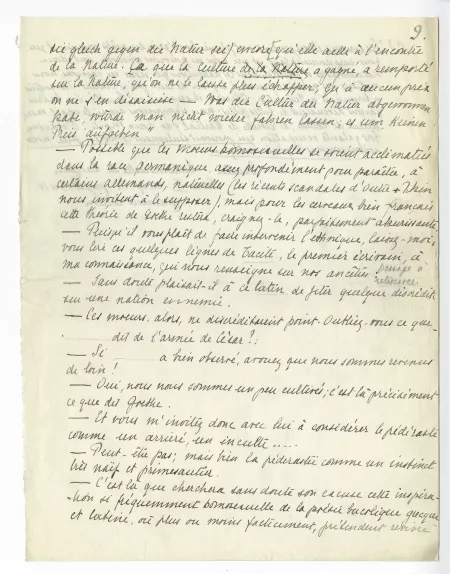 9.
sie gleich gegen die Natur sei) encore qu'elle aille à l'encontre
de la Nature. Ça que la culture de la Nature a gagné, a remporté
sur la Nature, qu'on ne le laisse plus échapper; qu'à aucun prix
on ne s'en désaisisse — Was die Cultur der Natur abgewonnen
habe, würde man nicht wieder fahren lassen, es um keinen
Preis aufgeben"
— Possible que les mœurs homosexuelles se soient acclimatées
dans la race germanique assez profondément pour paraître, à
certains allemands, naturelles (les récents scandales d'Outre-Rhin
nous invitent à le supposer), mais pour les cerveaux bien français
cette théorie de Gœthe restera, craignez-le, parfaitement ahurissante.
— Puisqu'il vous plaît de faire intervenir l'ethnique, laissez-moi
vous lire ces quelques lignes de Tacite, le premier écrivain, à
ma connaissance, qui nous renseigne sur nos ancêtres: passage à
retrouver.
— Sans doute plaisait-il à ce latin de jeter quelque discrédit
sur une nation ennemie.
— Ces mœurs, alors, ne discréditaient point. Oubliez-vous ce que
dit de l'armée de César?:
— Si a bien observé, avouez que nous sommes revenus
de loin!
— Oui, nous nous sommes un peu cultivés; c'est là précisément
ce que dit Gœthe.
— Et vous m'invitez donc avec lui à considérer le pédéraste
comme un arriéré, un inculte .....
— Peut-être pas; mais bien la pédérastie comme un instinct
très naïf et primesautier.
— C'est là que cherchera sans doute son excuse cette inspira-
-tion si fréquemment homosexuelle de la poésie bucolique grecque
et latine, où plus ou moins facticement, prétendent revivre